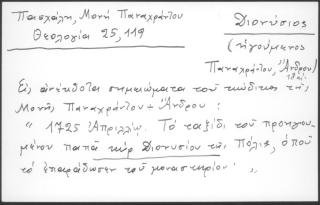 Πασχάλη, Μονή Παναχράντου
Θεολογία 25, 119
Διονύσιος
(ηγούμενος
Παναχράντου, Άνδρου)
18 αἰ.
Εἰς ἀνέκδοτα σημειώματα τοῦ κώδικος τῆς
Μονῆς Παναχράντου Άνδρου:
"1725 Ἀπριλλίῳ. Τό ταξίδι τοῦ προηγου-
μένου παπᾶ κύρ Διονυσίου τῆς Πόλις, ὁποῦ
τό ἐπαράδωσεν τοῦ μοναστηρίου."